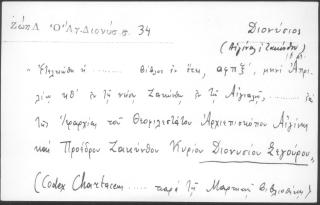 Ζώης Ὁ Ἅγ. Διονύσ. σ. 34
Διονύσιος
(Αἰγίνης & Ζακύνθου)
"Ἐτελειώθη ἡ ........ βίβλος ἐν ἔτει, αφπξʹ, μηνὶ Ἀπρι-
λίῳ κθʹ ἐν τῇ νήσῳ Ζακύνθῳ ἐν τῷ Αἰγιαλῷ, ........ ἐπὶ
τῆς Ἀρχαρχίας τοῦ Θεοφιλεστάτου Ἀρχιεπισκόπου Αἰγίνης
καὶ Προέδρου Ζακύνθου Κυρίου Διονυσίου Σεγούρου,
(Codex Chartaceus ........ παρὰ τῇ Μαρκιανῇ Βιβλιοθήκῃ)